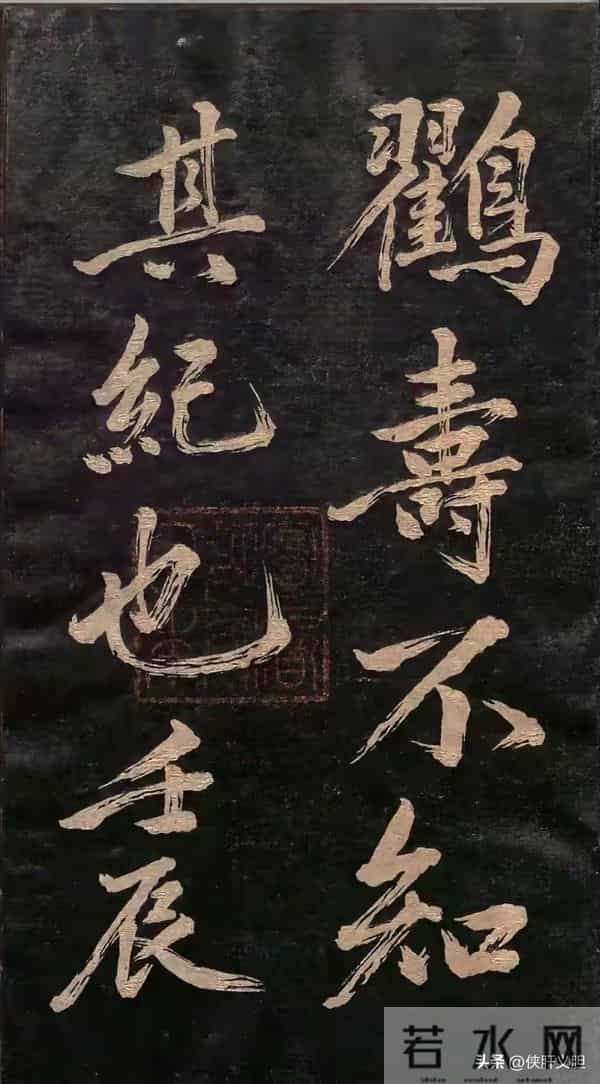 鶴壽不知
其紀也壬辰
若水网
头条 @侠肝义胆